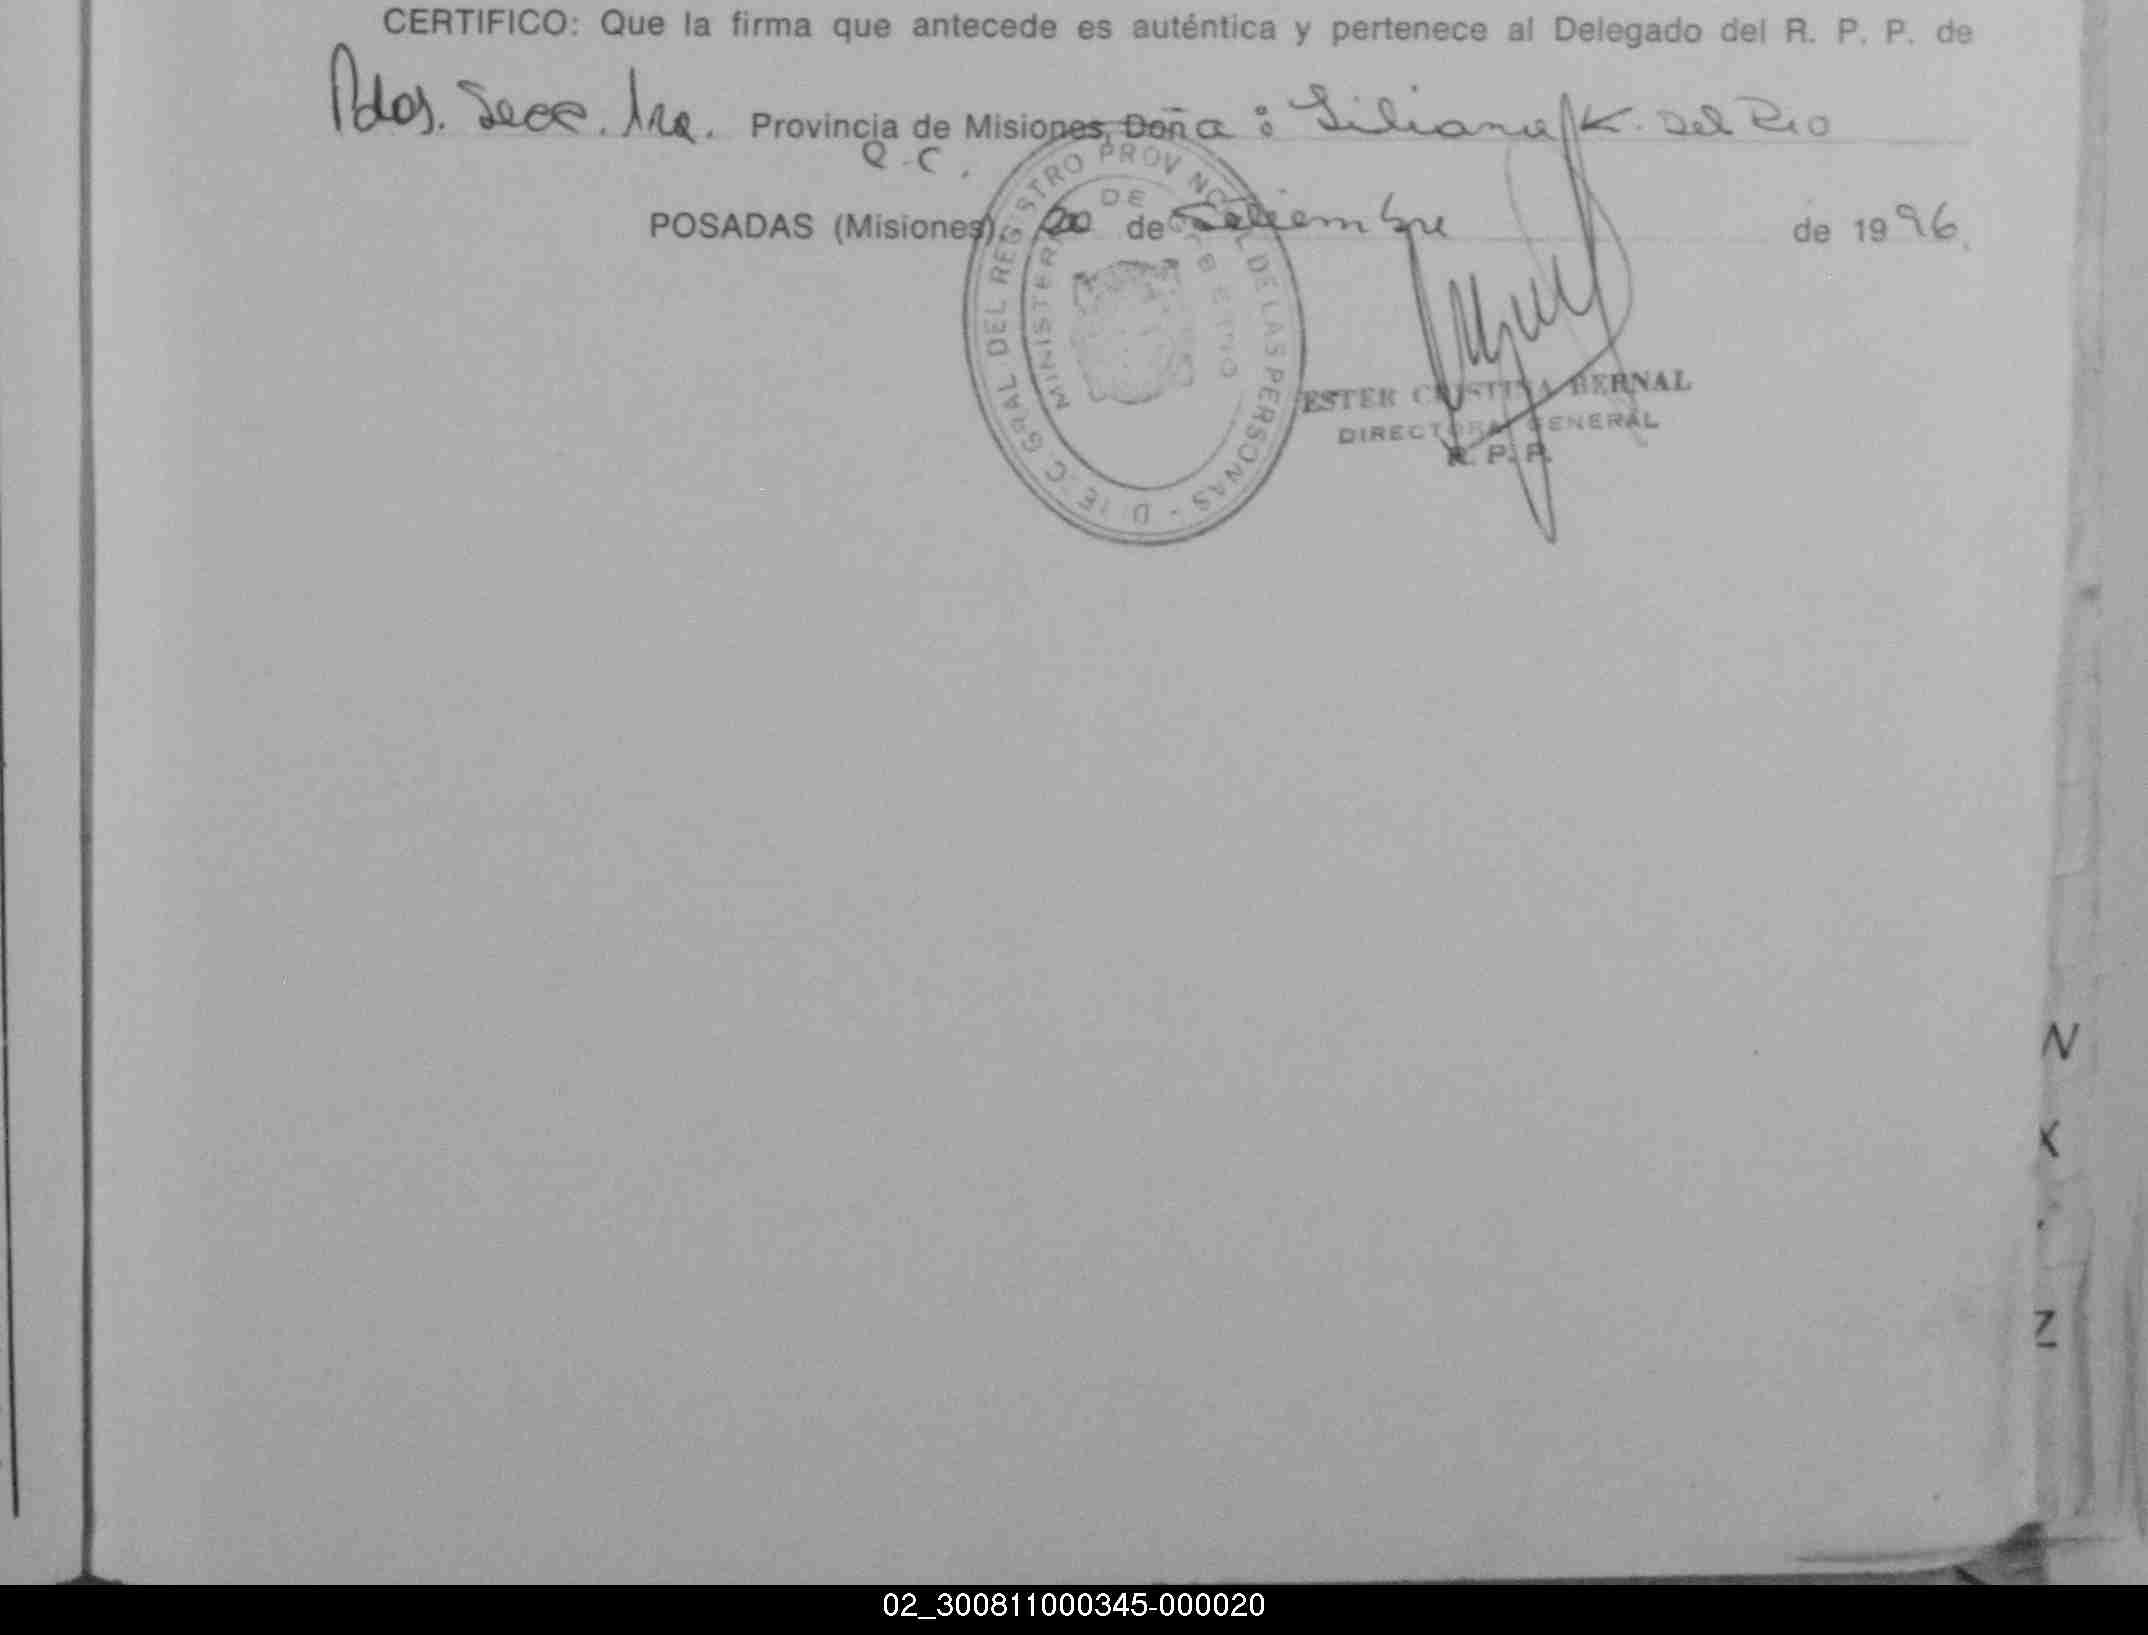 CERTIFICO: Que la firma que antecede es auténtica y pertenece al Delegado del R. P. P. de
Pdas. Secc. 1ra. Provincia de Misiones, Doña : Liliana K. Del Rio
R.C.
POSADAS (Misiones), 20 de Setiembre de 1996.
GRAL DEL REGISTRO PROVINCIAL DE LAS PERSONAS -
MINISTER DE
ESTER CRISTINA BERNAL
DIRECTORA GENERAL
R. P. P.
N
K
Z
02_300811000345-000020